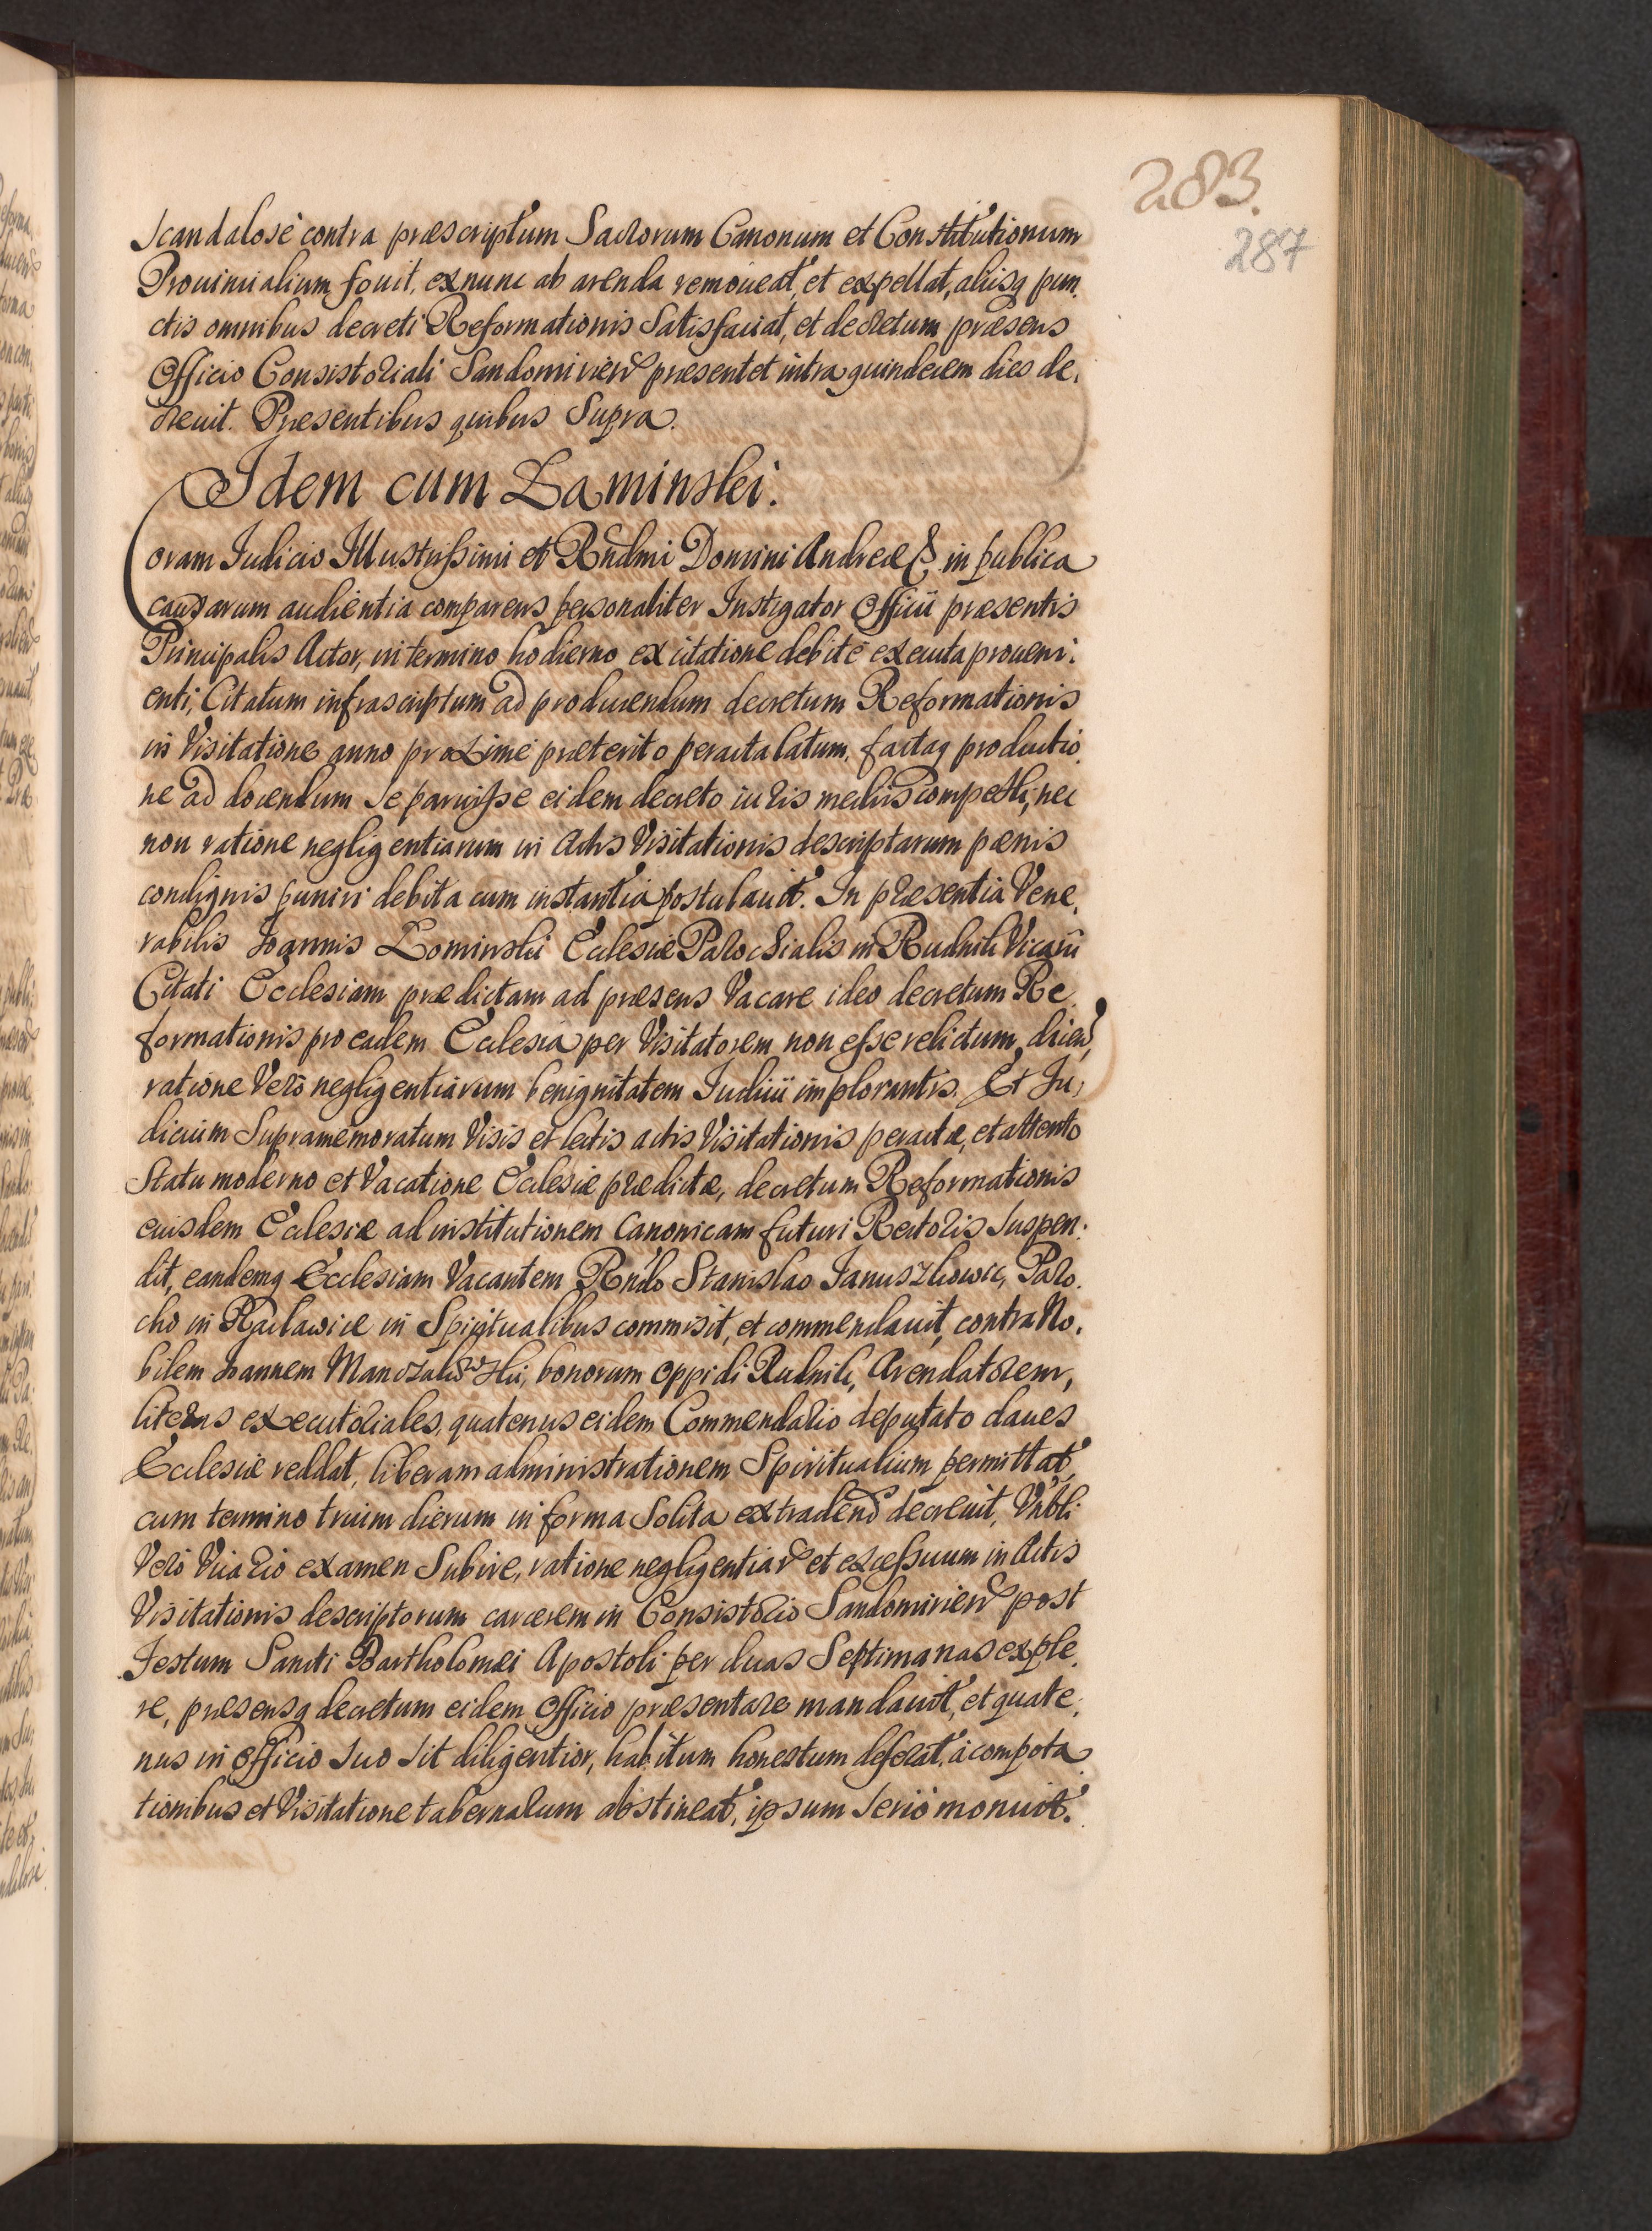 283.
287
scandalosè contra præscriptum Sacrorum Canonum et Constitutionum
Prouincialium fouit, ex nunc ab arenda remoueat, et expellat, aliisq pun,
ctis omnibus decreti Reformationis satisfaciat, et decretum præsens
Officio Consistoriali Sandomirien præsentet intra quindecem dies de,
creuit. Præsentibus quibus supra.
Idem cum Łaminski.
Coram Iudicio Illustrißimi et Rndmi Domini Andreæ &. in publica
causarum audientia comparens personaliter Instigator Officii præsentis
Principalis Actor, in termino hodierno ex citatione debitè executa proueni,
enti, Citatum infrascriptum ad producendum decretum Reformationis
in Visitatione anno proximè præterito peracta latum, factaq productio,
ne ad docendum se paruiße eidem decreto iuris mediis compelli, nec
non ratione negligentiarum in Actis Visitationis descriptarum pœnis
condignis puniri debita cum instantia postulauit. In præsentia Vene,
rabilis Joannis Łominski Ecclesiæ Parochialis in Rudnik Vicarii
Citati Ecclesiam prædictam ad præsens Vacare ideo decretum Re,
formationis pro eadem Ecclesia per Visitatorem non eße relictum dicen,
ratione Verò negligentiarum benignitatem Iudicii implorantis. Et Iu,
dicium supramemoratum Visis et lectis actis Visitationis peractæ, et attento
statu moderno et Vacatione Ecclesiæ prædictæ, decretum Reformationis
eiusdem Ecclesiæ ad institutionem Canonicam futuri Rectoris suspen,
dit, eandemq Ecclesiam Vacantem Rndo Stanislao Ianuszkowic, Paro,
cho in Racławice in Spiritualibus commisit, et commendauit, contra No,
bilem Joannem bonorum oppidi Rudnik, Arendatorem,
literas executoriales, quatenus eidem Commendario deputato claues
Ecclesiæ reddat, liberam administrationem Spiritualium permittat,
cum termino trium dierum in forma solita extraden decreuit, Vnbli
Verò Vicario examen subire, ratione negligentiar et exceßuum in Actis
Visitationis descriptorum carcerem in Consistorio Sandomirien post
Festum Sancti Bartholomæi Apostoli per duas Septimanas exple,
re, præsensq decretum eidem Officio præsentare mandauit, et quate,
nus in Officio suo sit diligentior, habitum honestum deferat, à compota,
tionibus et Visitatione tabernarum abstineat, ipsum seriò monuit.